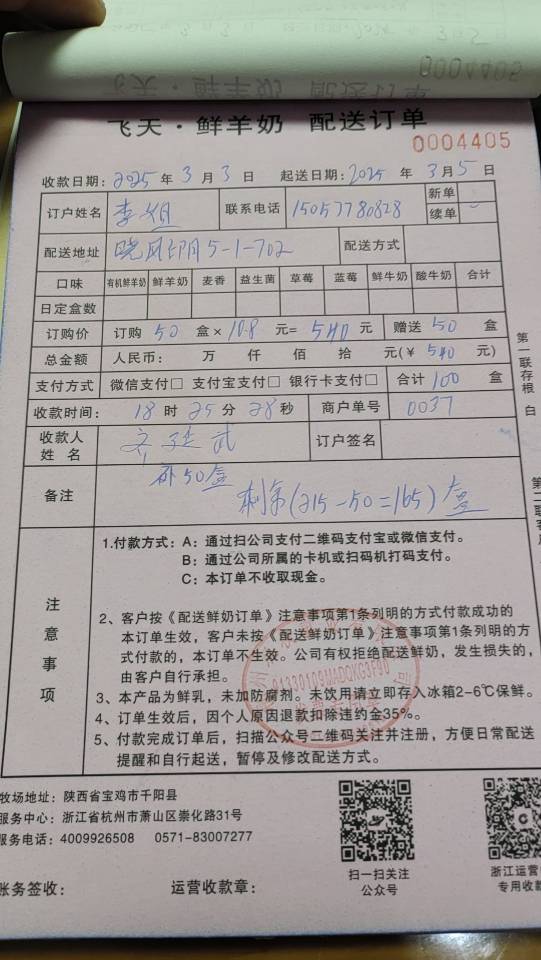 0004405
飞天·鲜羊奶 配送订单
0004405
收款日期：2025年3月3日 起送日期：2025年3月5日
订户姓名 李姐 联系电话 15057780828 新单
续单
配送地址 晓风印月5-1-702 配送方式
口味 有机鲜羊奶 鲜羊奶 麦香 益生菌 草莓 蓝莓 鲜牛奶 酸牛奶 合计
日定盒数
订购价 订购 50 盒×10.8元=540元 赠送 50 盒
总金额 人民币： 万 仟 佰 拾 元(¥ 540 元)
支付方式 微信支付□ 支付宝支付□ 银行卡支付□ 合计 100 盒
收款时间： 18时25分28秒 商户单号 0037
收款人姓名 订户签名
备注 补50盒
剩余(215-50=165)盒
注意事项
1.付款方式：A：通过扫公司支付二维码支付宝或微信支付。
B：通过公司所属的卡机或扫码机打码支付。
C：本订单不收取现金。
2、客户按《配送鲜奶订单》注意事项第1条列明的方式付款成功的
本订单生效，客户未按《配送鲜奶订单》注意事项第1条列明的方
式付款的，本订单不生效。公司有权拒绝配送鲜奶，发生损失的，
由客户自行承担。
3、本产品为鲜乳，未加防腐剂。未饮用请立即存入冰箱2-6℃保鲜。
4、订单生效后，因个人原因退款扣除违约金35%。
5、付款完成订单后，扫描公众号二维码关注并注册，方便日常配送
提醒和自行起送，暂停及修改配送方式。
第一联存根 白
第二联客
牧场地址：陕西省宝鸡市千阳县
服务中心：浙江省杭州市萧山区崇化路31号
服务电话：4009926508 0571-83007277
扫一扫关注
公众号
浙江运营
专用收款
账务签收： 运营收款章：